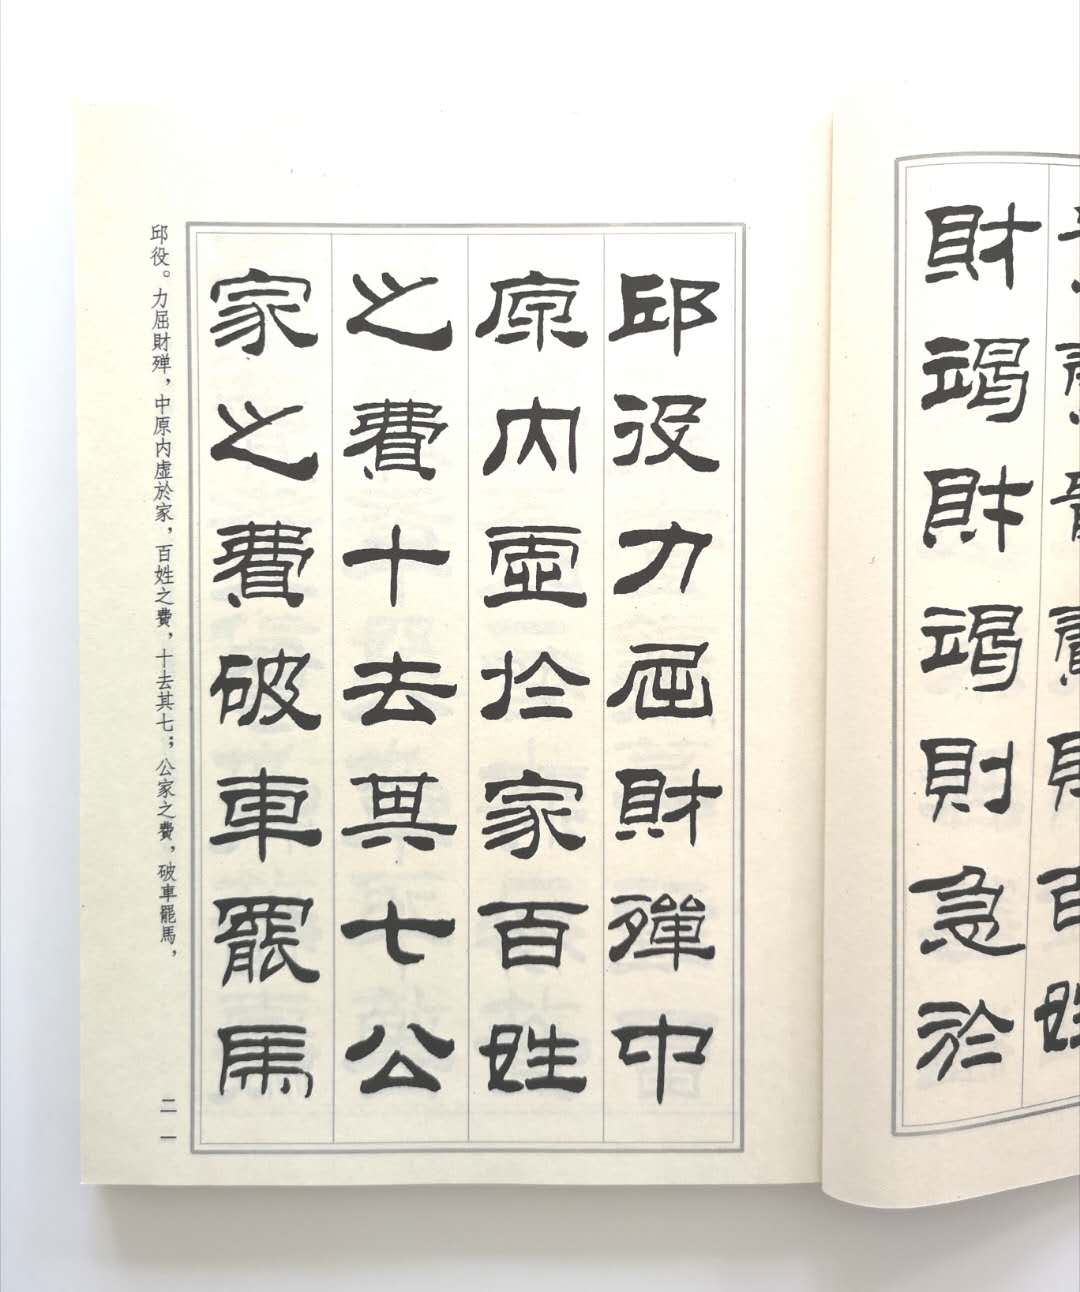 百姓
財竭財竭則急於
邱役力屈財殫中
原內虛於家百姓
之費十去其七公
家之費破車罷馬
邱役。力屈財殫，中原內虛於家，百姓之費，十去其七；公家之費，破車罷馬，
二一